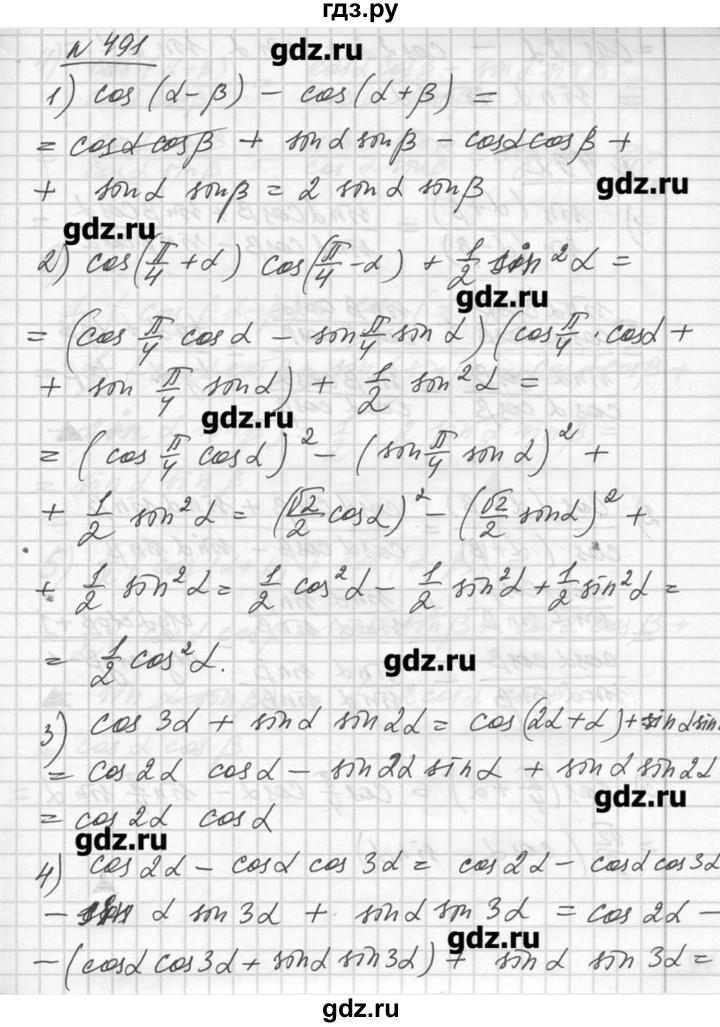 гдз.ру
N 491
gdz.ru
1) cos (α-β) - cos (α+β) =
= cosα cosβ + sinα sinβ - cosα cosβ +
+ sinα sinβ = 2 sinα sinβ
gdz.ru
gdz.ru
2) cos(π/4 + α) cos(π/4 - α) + 1/2 sin²α =
gdz.ru
= (cos π/4 cosα - sin π/4 sin α) (cos π/4 · cosα +
+ sin π/4 sinα) + 1/2 sin²α =
gdz.ru
= (cos π/4 cosα)² - (sin π/4 sin α)² +
+ 1/2 sin²α = (√2/2 cosα)² - (√2/2 sinα)² +
+ 1/2 sin²α = 1/2 cos²α - 1/2 sin²α + 1/2 sin²α =
= 1/2 cos²α.
gdz.ru
3) cos 3α + sinα sin 2α = cos (2α+α) + sinα sin
= cos 2α cosα - sin 2α sinα + sinα sin 2α
gdz.ru
= cos 2α cosα
gdz.ru
4) cos 2α - cosα cos 3α = cos 2α - cosα cos 3α
- sin α sin 3α + sinα sin 3α = cos 2α -
gdz.ru
- (cosα cos 3α + sinα sin 3α) + sin α sin 3α =
gdz.ru